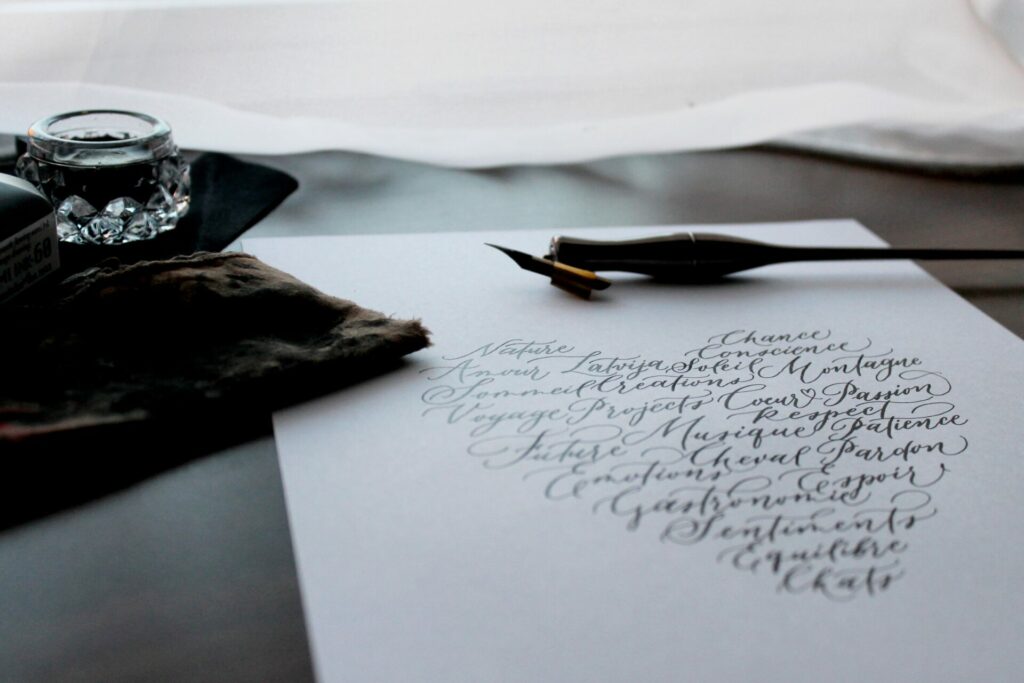 INK-60
Nature Chance
Conscience
Amour Latvija Soleil Montagne
Sommeil Créations Coeur Passion
Voyage Projects Respect
Future Musique Patience
Cheval Pardon
Emotions Espoir
Gastronomie
Sentiments
Equilibre
Chats